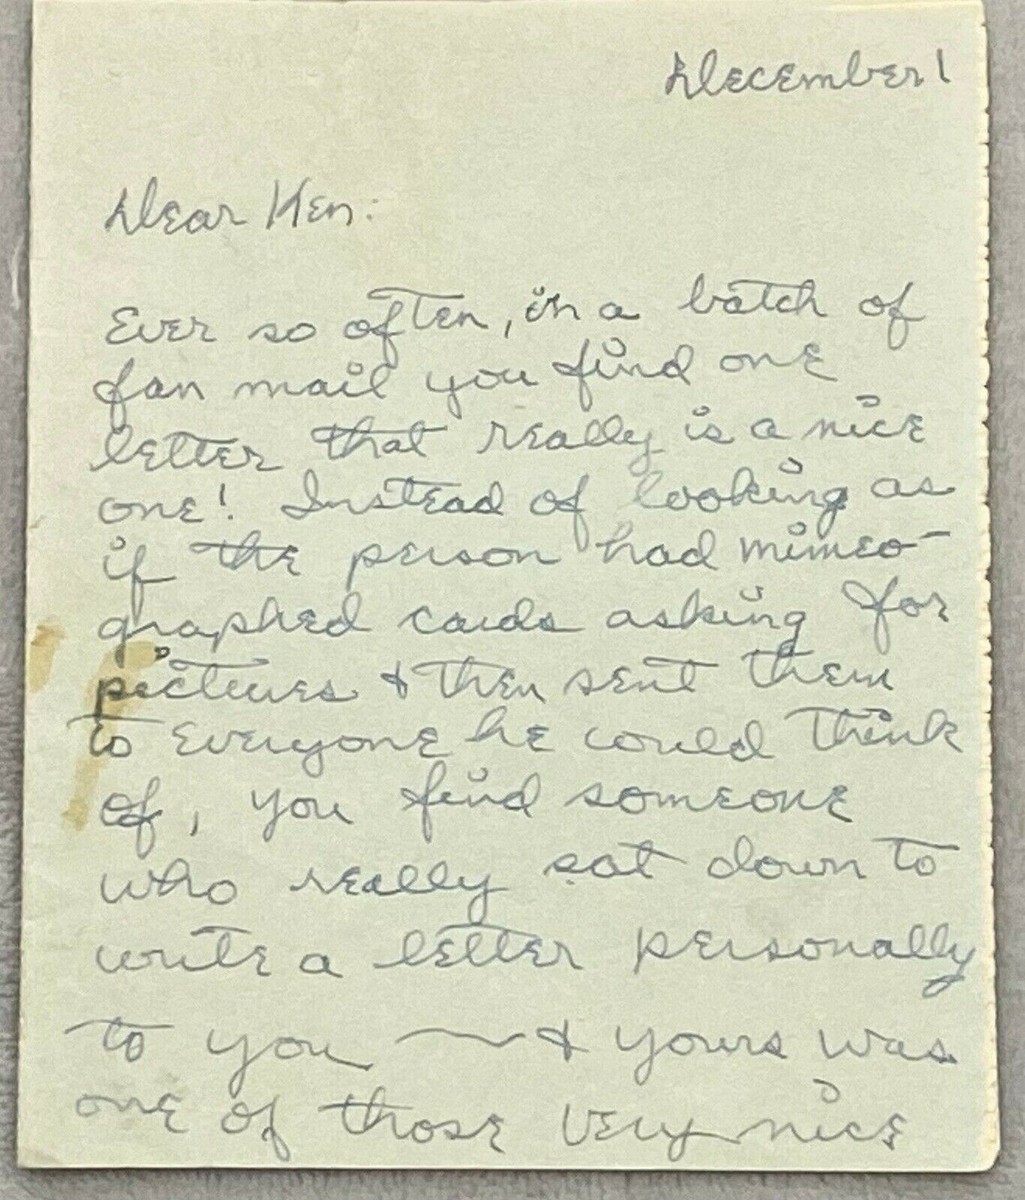 December 1
Dear Ken:
Ever so often, in a batch of
fan mail you find one
letter that really is a nice
one! Instead of looking as
if the person had mimeo-
graphed cards asking for
pictures & then sent them
to everyone he could think
of, you find someone
who really sat down to
write a letter personally
to you ~ & yours was
one of those very nice